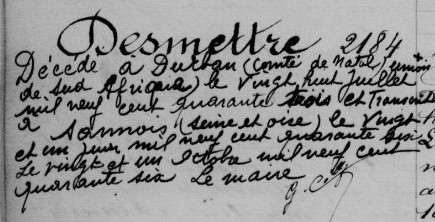 Desmettre 2184
Décédé à Durban (comté de Natal) union
de Sud Afrique) le vingt huit juillet
mil neuf cent quarante trois et Transcrit
à Sannois (seine et oise) le vingt
et un juin mil neuf cent quarante six
Le vingt et un octobre mil neuf cent
quarante six Le maire